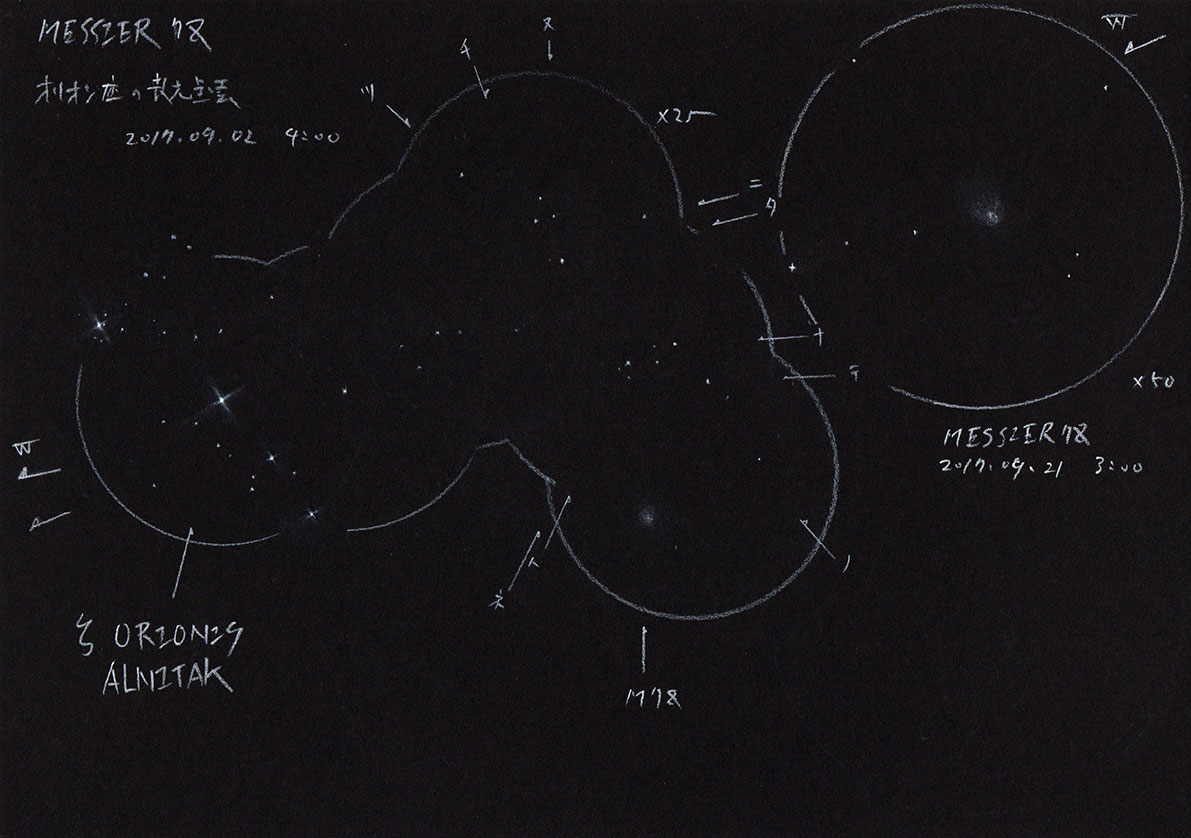 MESSIER 78
オリオン座の散光星雲
2017.09.02 4:00
ヌ
チ
ツ
×25
W
ニ
タ
ナ
テ
×50
MESSIER 78
2017.09.21 3:00
W
ト
ネ
ノ
ζ ORIONIS
ALNITAK
M78